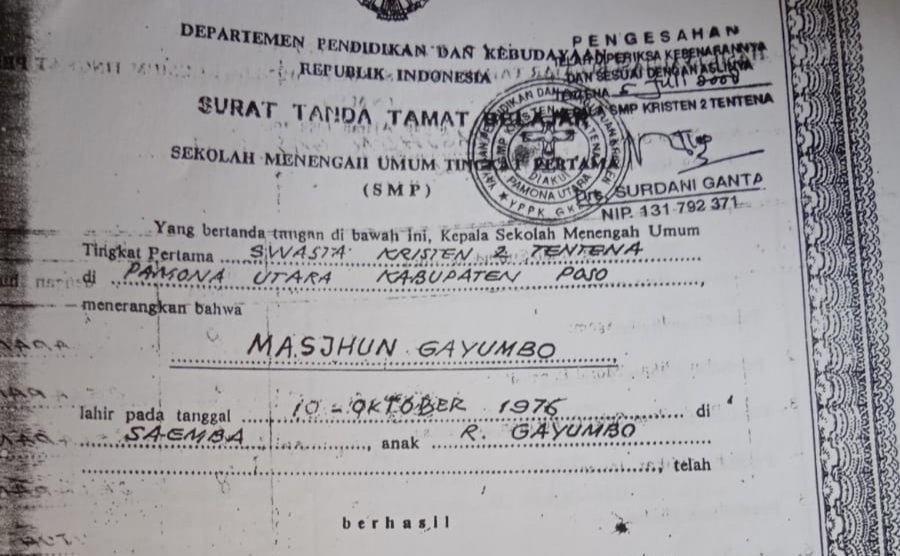 DEPARTEMEN PENDIDIKAN DAN KEBUDAYAAN
REPUBLIK INDONESIA
PENGESAHAN
TELAH DIPERIKSA KEBENARANNYA
DAN SESUAI DENGAN ASLINYA
TENTENA 5 Juli 2000
KEPALA SMP KRISTEN 2 TENTENA
Drs. SURDANI GANTA
NIP. 131 792 371
SURAT TANDA TAMAT BELAJAR
SEKOLAH MENENGAH UMUM TINGKAT PERTAMA
(SMP)
SMP KRISTEN 2 TENTENA
DIAKUI
PAMONA UTARA
YPPK GK
Yang bertanda tangan di bawah ini, Kepala Sekolah Menengah Umum
Tingkat Pertama SWASTA KRISTEN 2 TENTENA
di PAMONA UTARA KABUPATEN POSO,
menerangkan bahwa
MASJHUN GAYUMBO,
lahir pada tanggal 10 - OKTOBER 1976 di
SAEMBA, anak R. GAYUMBO
, telah
berhasil